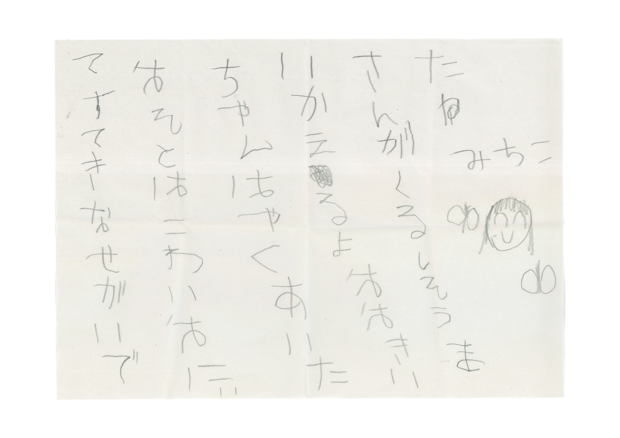 てすてきーなせがいで
おそとはこわいおにい
ちゃんはやくあいた
いかえるよ
さんがくるしそうま
たね
みちこ